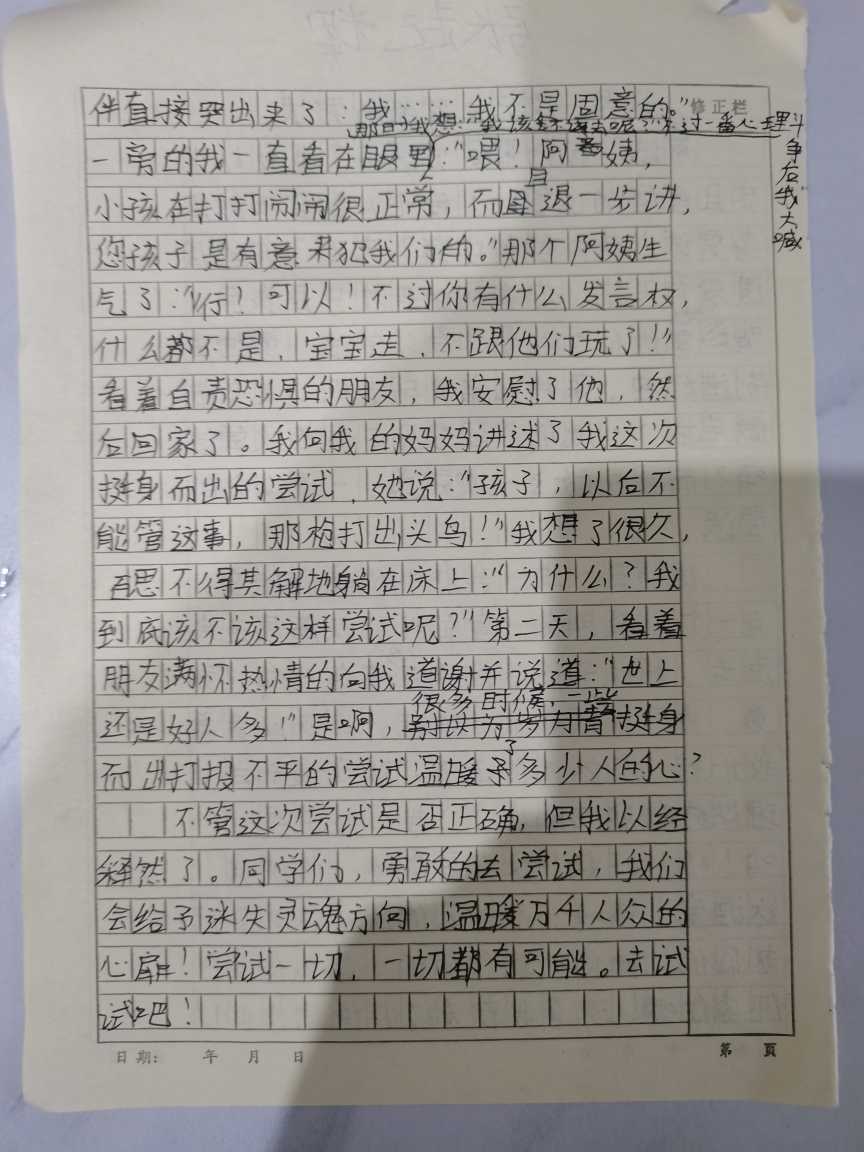 伴直接哭出来了：我……我不是固意的。"
修正栏
那时我想："我该不该去呢？"不过一番心理斗争后我大喊
一旁的我一直看在眼里："喂！阿姨，
小孩在打打闹闹很正常，而且退一步讲，
您孩子是有意来犯我们的。"那个阿姨生
气了："行！可以！不过你有什么发言权，
什么都不是，宝宝走，不跟他们玩了！"
看着自责恐惧的朋友，我安慰了他，然
后回家了。我向我的妈妈讲述了我这次
挺身而出的尝试，她说："孩子，以后不
能管这事，那枪打出头鸟！"我想了很久，
百思不得其解地躺在床上："为什么？我
到底该不该这样尝试呢？"第二天，看着
朋友满怀热情的向我道谢并说道："世上
很多时候，一些
还是好人多！"是啊，挺身
而出打报不平的尝试温暖了多少人的心？
不管这次尝试是否正确，但我以经
释然了。同学们，勇敢的去尝试，我们
会给予迷失灵魂方向，温暖万千人众的
心扉！尝试一切，一切都有可能。去试
试吧！
日期： 年 月 日
第 页